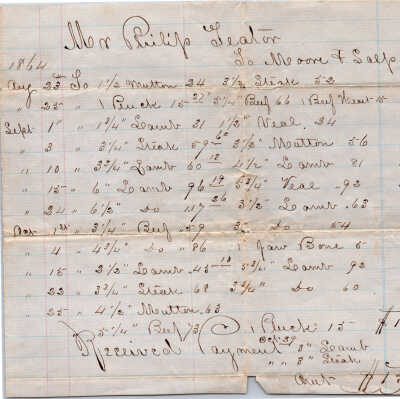 Mr Philip Teator
1864 To Moore & Salp
Aug 23d To 1 1/2 Mutton 24 3 1/2 Steak 52
" 25 " 1 Pluck 15 5 1/4 Beef 66 1 Beef Heart 15
Sept 1st " 1 3/4 " Lamb 31 1 1/2 " Veal 24
" 3 " 3 1/4 " Steak 59 3 1/2 " Mutton 56
" 10 " 3 3/4 " Lamb 60 12 4 1/2 " Lamb 81
" 15 " 6 " Lamb 96 19 5 3/4 " Veal .92
" 24 " 6 1/2 " Do 117 26 3 1/2 " Lamb .63
1st " 3 3/4 " Beef .59 Do 54
" 4 " 4 3/4 " Do " 86 1 Jaw Bone 5
" 15 " 2 1/2 " Lamb .45 18 5 3/4 " Lamb 92
" 22 " 3 3/4 " Steak 68 3 3/4 " Do 60
" 25 " 4 1/2 " Mutton .63
5 1/4 " Beef 73 1 Pluck 15 $1
Received Payment 3 " Lamb
" " 3 " Steak
$13